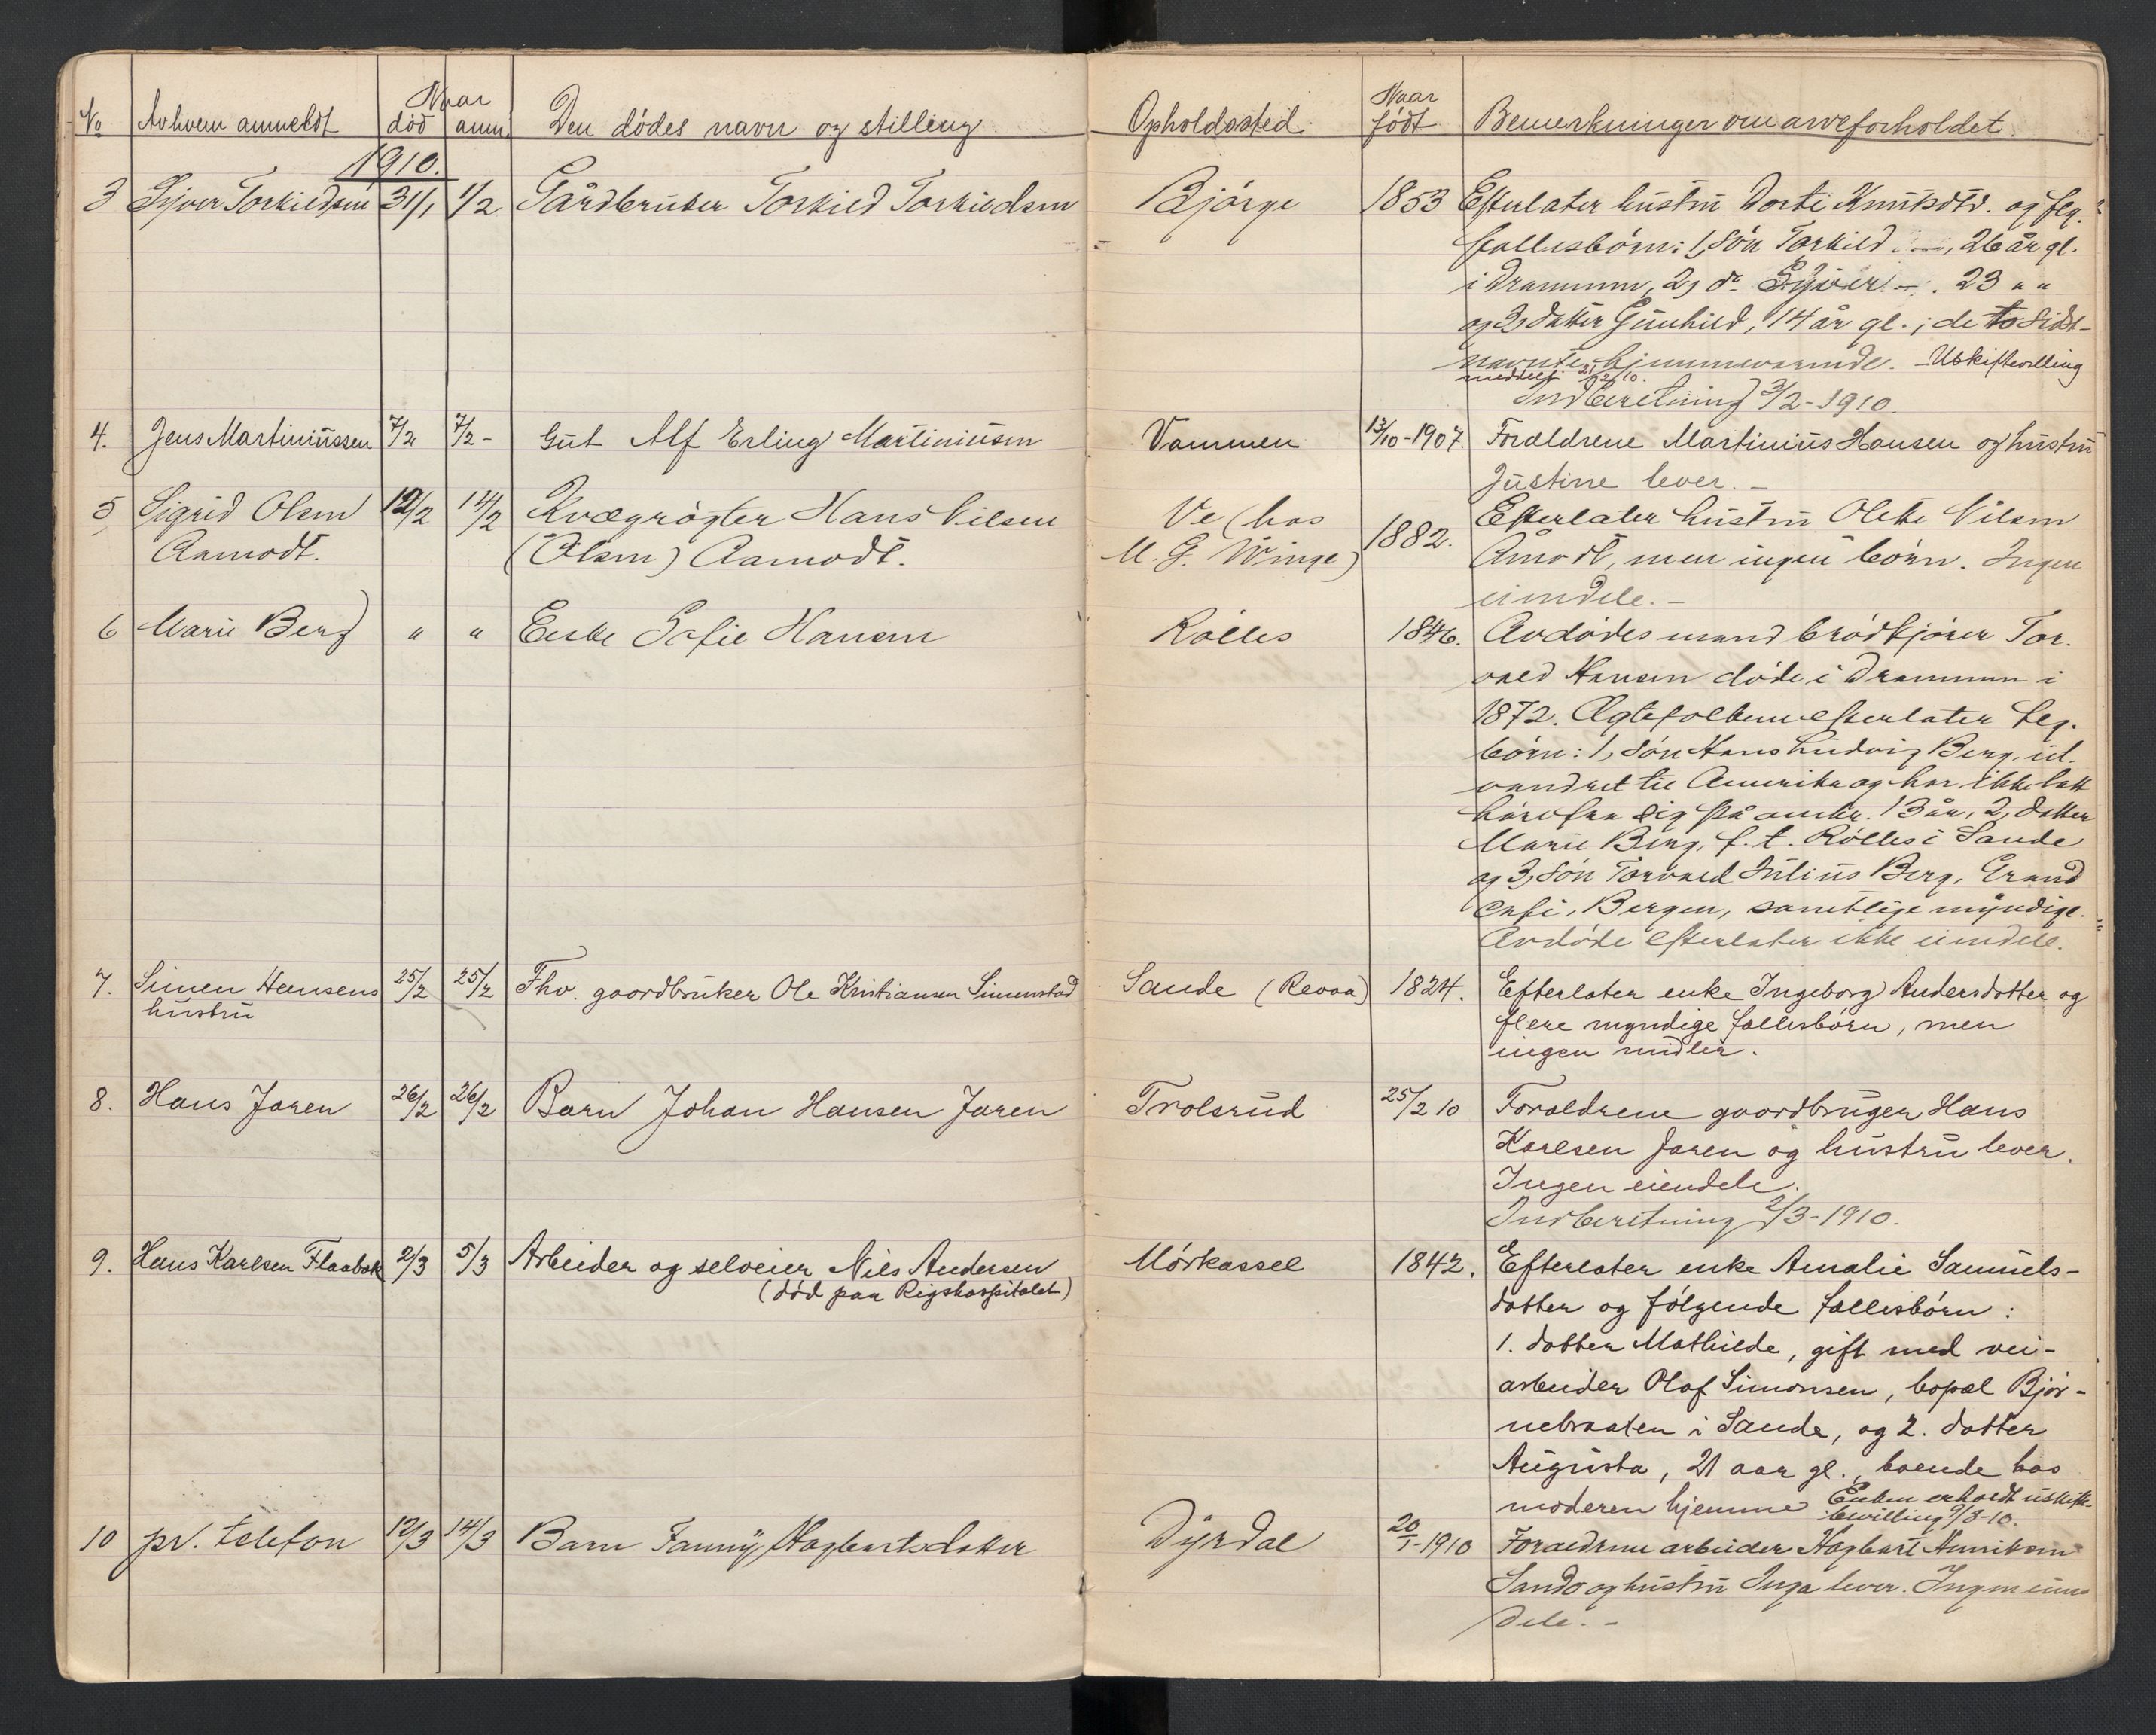 No Avhvem anmeldt Naar død anm. Den dødes navn og stilling Opholdssted Naar født Bemerkninger om arveforholdet.
1910.
3 Syver Torkildsen 31/1 1/2 Gårdbruker Torkild Torkildsen Bjørge 1853 Efterlater hustru Dorte Knutsdtr. og flg.
fællesbørn: 1, søn Torkild —, 26 år gl.
i Drammen, 2, do Syver —. 23 " "
og 3, datter Gunhild, 14 år gl.; de to sidst-
nævnte hjemmeværende. - Uskiftevilling
meddelt 21/2 10.
Indberetning 3/2-1910.
4. Jens Martiniussen 7/2 7/2- Gut Alf Erling Martiniusen Vammen 13/10-1907. Forældrene Martinius Hansen og hustru
Justine lever. -
5 Sigrid Olsen 12/2 14/2 Kvægrøgter Hans Nilsen Ve (hos 1882. Efterlater hustru Olete Nilsen
Aamodt. (Olsen) Aamodt. M. G. Winge) Åmodt, men ingen børn. Ingen
eiendele. -
6 Marie Berg " " Enke Sofie Hansen Rølles 1846. Avdødes mand brødkjører Tor-
vald Hansen døde i Drammen i
1872. Ægtefolkene efterlater flg.
børn: 1, søn Hans Ludvig Berg, ut-
vandret til Amerika og har ikke latt
høre fra sig på omtr. 13 år, 2, datter
Marie Berg, f. t. Rølles i Sande
og 3, søn Torvald Julius Berg, Grand
Café, Bergen, samtlige myndige.
Avdøde efterlater ikke eiendele.
7. Simen Hansens 25/2 25/2 Fhv. gaardbruker Ole Kristiansen Simenstad Sande (Revaa) 1824. Efterlater enke Ingeborg Andersdatter og
hustru flere myndige fællesbørn, men
ingen midler.
8. Hans Jaren 26/2 26/2 Barn Johan Hansen Jaren Trolsrud 25/2 10 Forældrene gaardbruger Hans
Karlsen Jaren og hustru lever.
Ingen eiendele.
Indberetning 2/3-1910.
9. Hans Karlsen Flaabæk 2/3 5/3 Arbeider og selveier Nils Andersen Mørkassel 1842. Efterlater enke Amalie Samuels-
(død paa Rigshospitalet) datter og følgende fællesbørn:
1. datter Mathilde, gift med vei-
arbeider Olaf Simonsen, bopæl Bjør-
nebraaten i Sande, og 2. datter
Augusta, 21 aar gl., boende hos
moderen hjemme Enken erholdt uskifte-
bevilling 9/3-10.
10 pr. telefon 12/3 14/3 Barn Fanny Hagbartsdatter Dyrdal 20/1-1910 Forældrene arbeider Hagbart Henriksen
Sando og hustru Inga lever. Ingen eien-
dele. -